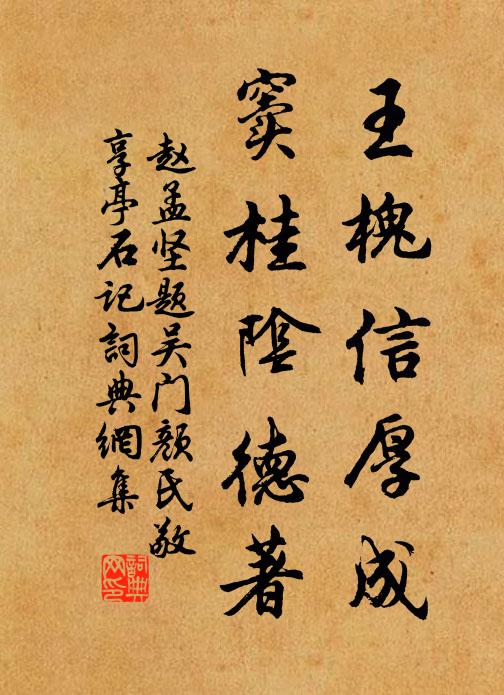 王槐信厚成
窦桂陰德著
赵孟坚题吴门颜氏敬
享亭石记詞典網集
詞典網印